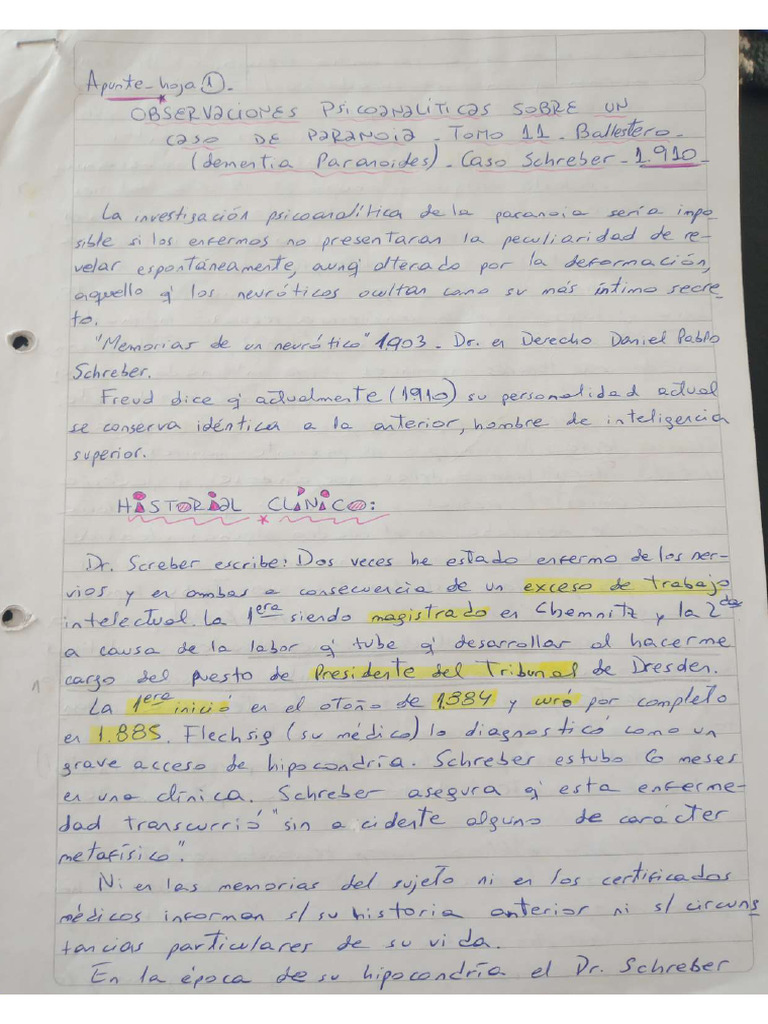 Apunte-hoja ①.
OBSERVACIONES PSICOANALÍTICAS SOBRE UN
CASO DE PARANOIA - TOMO 11 - Ballestero-
(dementia Paranoides) - Caso Schreber - 1.910-
La investigación psicoanalítica de la paranoia sería impo
sible si los enfermos no presentaran la peculiaridad de re-
velar espontáneamente, aunq' alterado por la deformación,
aquello q' los neuróticos ocultan como su más íntimo secre-
to.
"Memorias de un neurótico" 1903 - Dr. en Derecho Daniel Pablo
Schreber.
Freud dice q' actualmente (1910) su personalidad actual
se conserva idéntica a la anterior, hombre de inteligencia
superior.
HISTORIAL CLÍNICO:
Dr. Screber escribe: Dos veces he estado enfermo de los ner-
vios y en ambas a consecuencia de un exceso de trabajo
intelectual. La 1era siendo magistrado en Chemnitz y la 2da
a causa de la labor q' tube q' desarrollar al hacerme
cargo del puesto de Presidente del Tribunal de Dresden.
La 1era inició en el otoño de 1.884 y curó por completo
en 1.885. Flechsig (su médico) lo diagnosticó como un
grave acceso de hipocondría. Schreber estubo 6 meses
en una clínica. Schreber asegura q' esta enferme-
dad transcurrió "sin a cidente alguno de carácter
metafísico".
Ni en las memorias del sujeto ni en los certificados
médicos informan s/su historia anterior ni s/ circuns
tancias particulares de su vida.
En la época de su hipocondría el Dr. Schreber